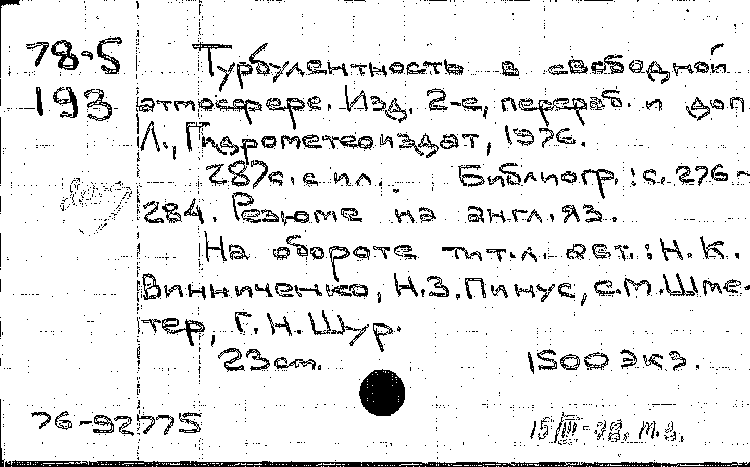 78-5 Турбулентность в свободной
193 атмосфере. Изд. 2-е, перераб. и доп
Л., Гидрометеоиздат, 1976.
287с. с ил. Библиогр.: с. 276-
284. Резюме на англ. яз.
На обороте тит. л. авт.: Н. К.
Винниченко, Н. З. Пинус, С. М. Шме-
тер, Г. Н. Шур.
23 см. 1500 экз.
76-92775
15/III-78.